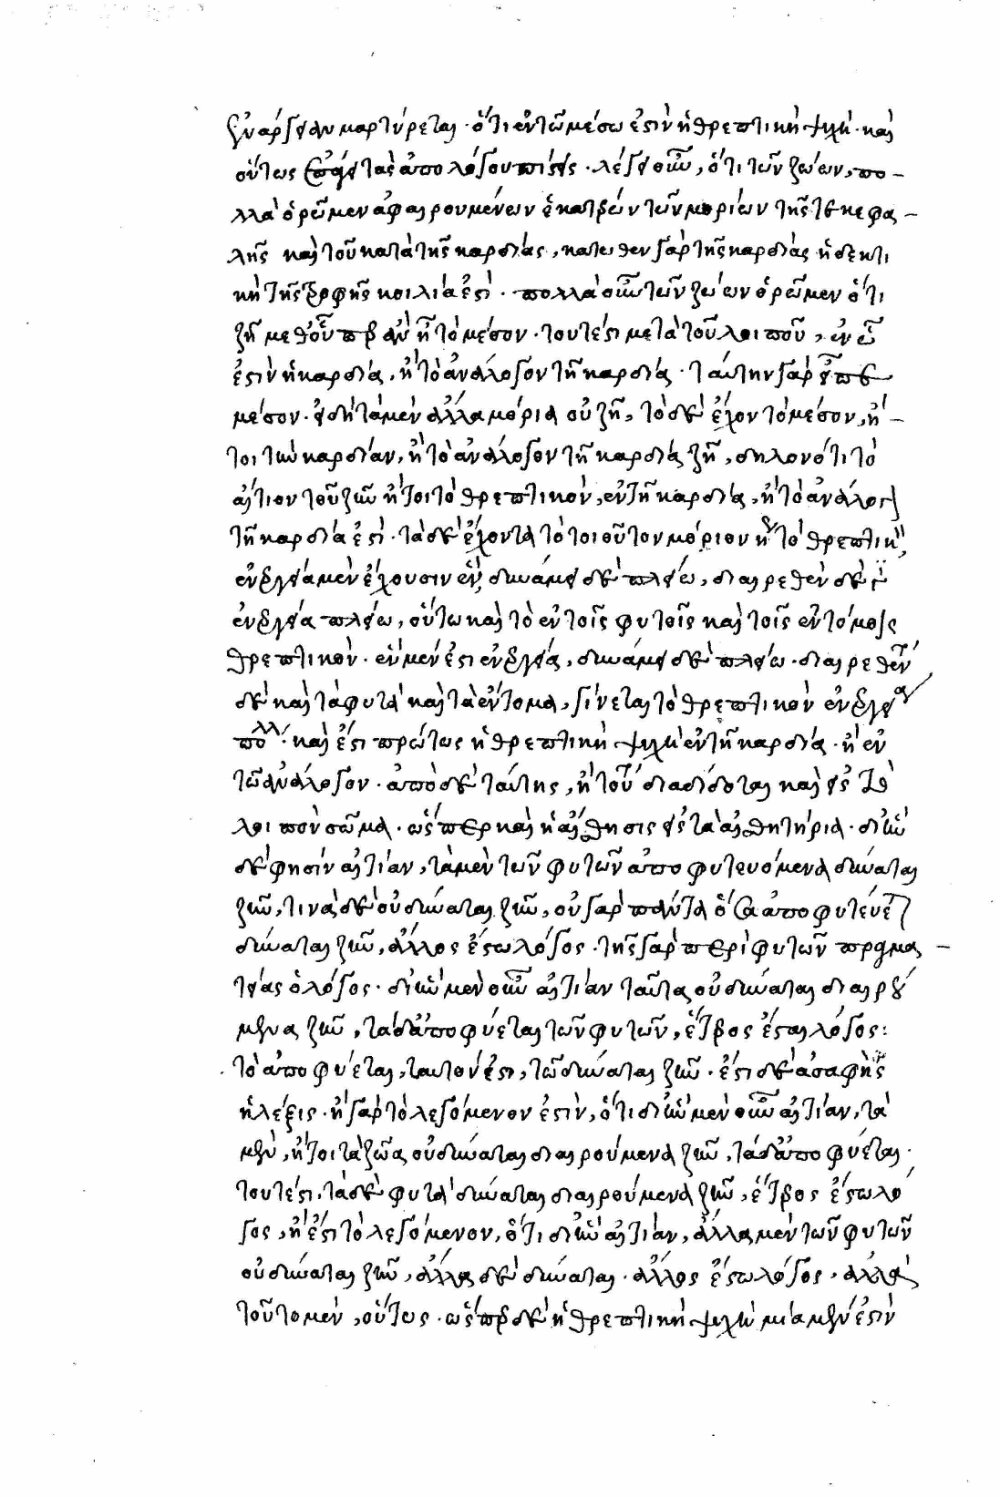 ἐνάργειαν μαρτύρεται· ὅτι ἐν τῶ μέσω ἐστὶν ἡ θρεπτικὴ ψυχή· καὶ
οὕτως ἀπὸ λόγου πίστις· λέγει οὖν, ὅτι τῶν ζώων, πο-
λλὰ ὁρῶμεν ἀφαιρουμένων ἑκατέρων τῶν μορίων τῆς τε κεφα-
λῆς καὶ τοῦ κατὰ τῆς καρδίας, κάτωθεν γὰρ τῆς καρδίας ἡ δεκτι
κὴ τῆς τροφῆς κοιλία ἐστί· πολλὰ οὖν τῶν ζώων ὁρῶμεν ὅτι
ζῆ μεθ' οὗπερ ἂν ἦ τὸ μέσον· τουτέστι μετὰ τοῦ λοιποῦ, ἐν ὧ
ἐστὶν ἡ καρδία, ἢ τὸ ἀνάλογον τῆ καρδία· ταύτην γὰρ εἶπε
μέσον· ἐπειδὴ τὰ μὲν ἄλλα μόρια οὐ ζῆ, τὸ δὲ ἔχον τὸ μέσον, ἤ-
τοι τὴν καρδίαν, ἢ τὸ ἀνάλογον τῆ καρδία ζῆ, δηλονότι τὸ
αἴτιον τοῦ ζῶν ἤτοι τὸ θρεπτικὸν, ἐν τῆ καρδία, ἢ τὸ ἀνάλογον
τῆ καρδία ἐστί· τὰ δὲ ἔχοντα τὸ τοιοῦτον μόριον ἤτοι τὸ θρεπτικὸν,
ἐνεργεία μὲν ἔχουσιν ἕν, δυνάμει δὲ πλείω, διαιρεθὲν δὲ
ἐνεργεία πλείω, οὕτω καὶ τὸ ἐν τοῖς φυτοῖς καὶ τοῖς ἐντόμοις
θρεπτικὸν· ἓν μέν ἐστι ἐνεργεία, δυνάμει δὲ πλείω· διαιρεθέντα
δὲ καὶ τὰ φυτὰ καὶ τὰ ἔντομα, γίνεται τὸ θρεπτικὸν ἐνεργεία
πολλά· καὶ ἔστι πρώτως ἡ θρεπτικὴ ψυχὴ ἐν τῆ καρδία· ἢ ἐν
τῶ ἀνάλογον· ἀπὸ δὲ ταύτης, ἢ τούτου διαδίδοται καὶ εἰς τὸ
λοιπὸν σῶμα· ὥσπερ καὶ ἡ αἴσθησις εἰς τὰ αἰσθητήρια· δι' ἣν
δέ φησιν αἰτίαν, τὰ μὲν τῶν φυτῶν ἀποφυτευόμενα δύναται
ζῆν, τινὰ δὲ οὐ δύναται ζῆν, οὐ γὰρ πάντα ὅσα ἀποφυτεύεται
δύναται ζῆν, ἄλλος ἔστω λόγος· τῆς γὰρ περὶ φυτῶν πραγμα-
τείας ὁ λόγος· δι' ἣν μὲν οὖν αἰτίαν ταῦτα οὐ δύναται διαιρού
μενα ζῆν, τὰ δ' ἀποφύεται τῶν φυτῶν, ἕτερος ἔσται λόγος:
τὸ ἀποφύεται, ταυτόν ἐστι, τῶ δύναται ζῆν· ἔστι δὲ ἀσαφὴς
ἡ λέξις· ἢ γὰρ τὸ λεγόμενον ἐστὶν, ὅτι δι' ἣν μὲν οὖν αἰτίαν, τὰ
μὲν, ἤτοι τὰ ζῶα οὐ δύναται διαιρούμενα ζῆν, τὰ δ' ἀποφύεται·
τουτέστι, τὰ δὲ φυτὰ δύναται διαιρούμενα ζῆν, ἕτερος ἔστω λό
γος, ἢ ἔστι τὸ λεγόμενον, ὅτι δι' ἣν αἰτίαν, ἄλλα μὲν τῶν φυτῶν
οὐ δύναται ζῆν, ἄλλα δὲ δύναται· ἄλλος ἔστω λόγος· ἀλλὰ
τοῦτο μὲν, οὕτως· ὥσπερ δὲ ἡ θρεπτικὴ ψυχὴ μία μέν ἐστιν